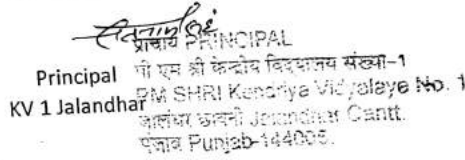 प्राचार्य PRINCIPAL
Principal
पी एम श्री केन्द्रीय विद्यालय संख्या-1
KV 1 Jalandhar
PM SHRI Kendriya Vidyalaya No. 1
जालंधर छावनी Jalandhar Cantt.
पंजाब Punjab-144005.